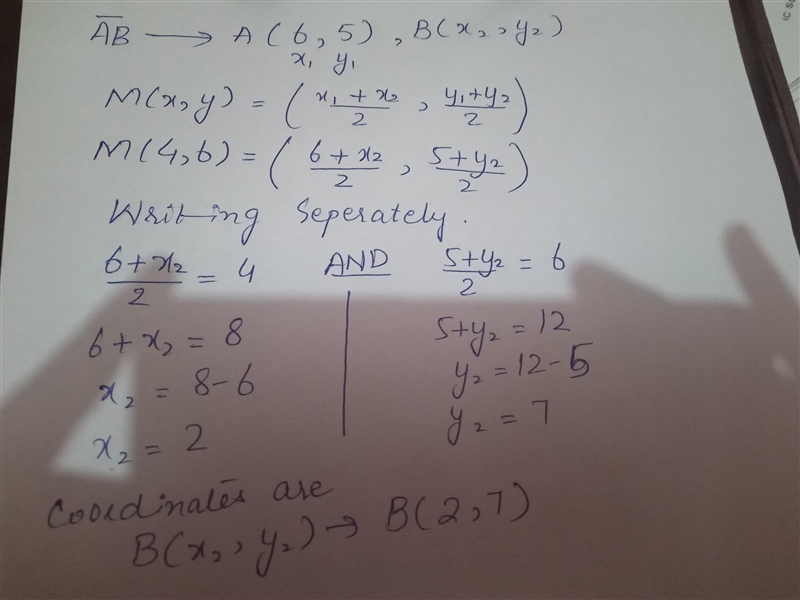 AB → A(6,5), B(x₂, y₂)
x₁ y₁
M(x,y) = (x₁ + x₂/2, y₁+y₂/2)
M(4,6) = (6+x₂/2, 5+y₂/2)
Writing Seperately.
6+x₂/2 = 4 AND 5+y₂/2 = 6
6+x₂ = 8 5+y₂ = 12
x₂ = 8-6 y₂ = 12-5
x₂ = 2 y₂ = 7
Coordinates are
B(x₂, y₂) → B(2,7)